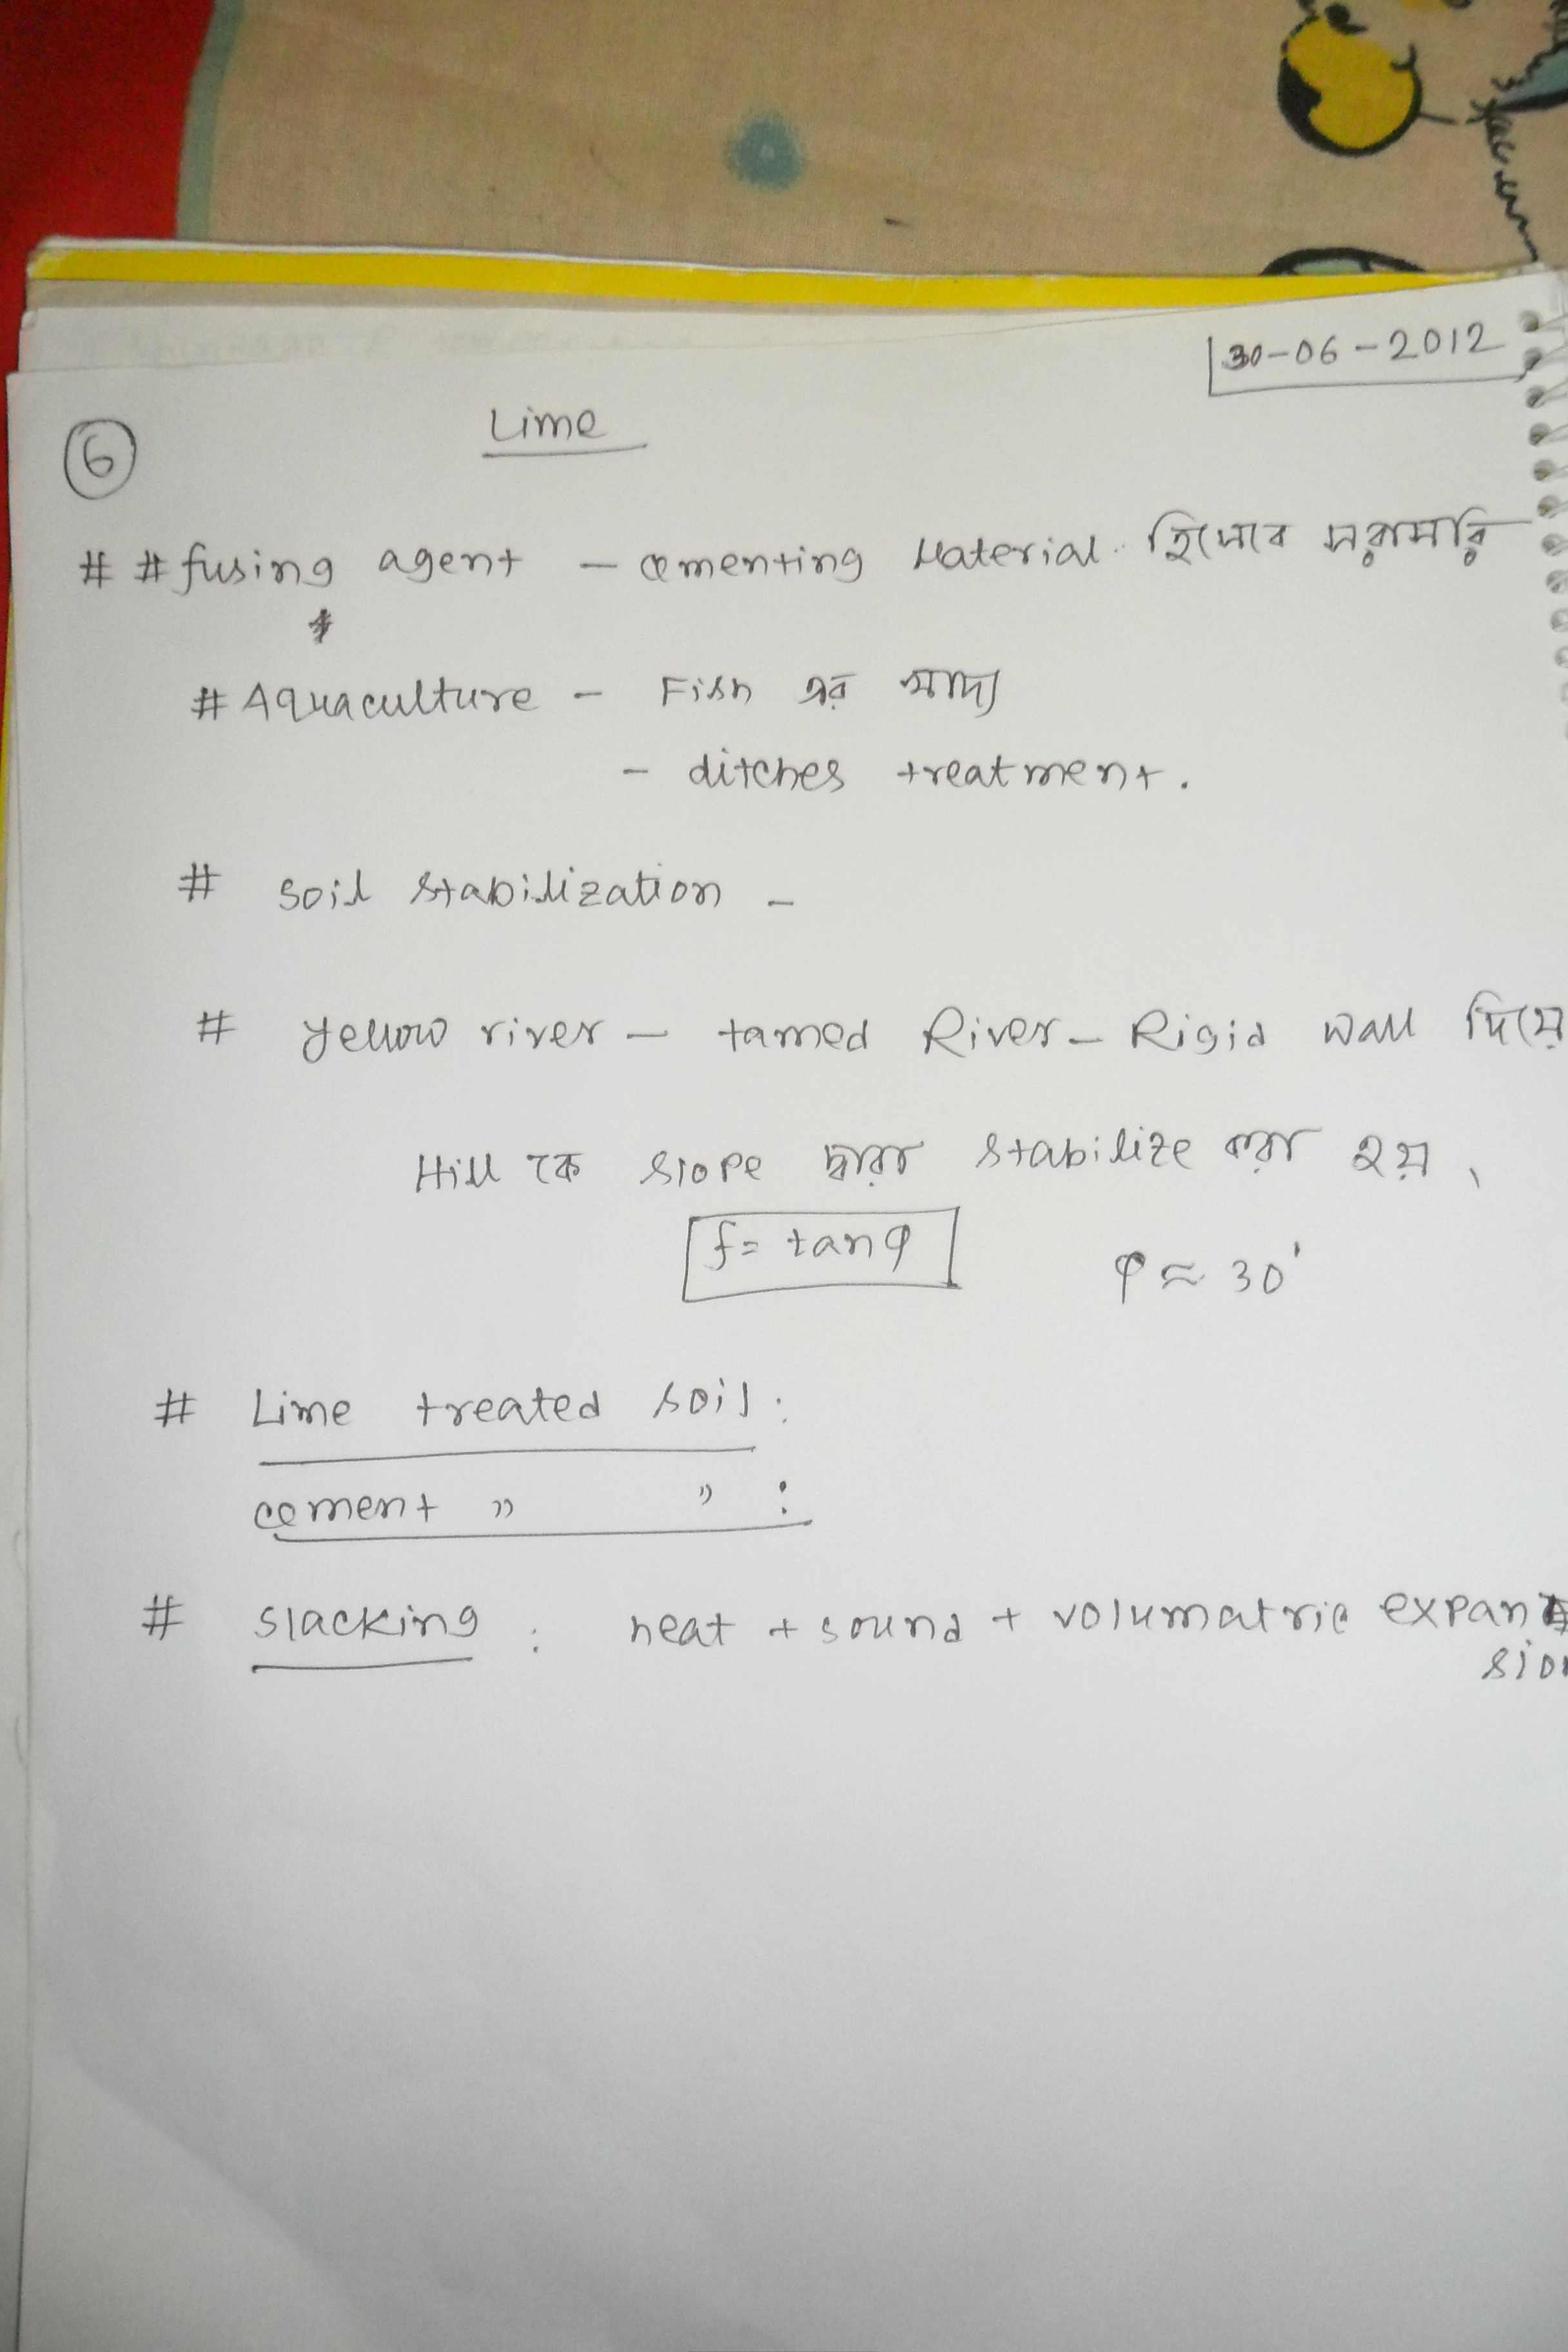 30-06-2012
6
Lime
# # fusing agent - cementing Material হিসেবে সরাসরি
# Aquaculture - Fish এর খাদ্য
- ditches treatment.
# soil stabilization -
# yellow river - tamed River - Rigid wall দিয়ে
Hill কে slope দ্বারা stabilize করা হয়।
f = tanφ
φ ≈ 30'
# Lime treated soil:
cement " " :
# slacking : heat + sound + volumatric expan
sion